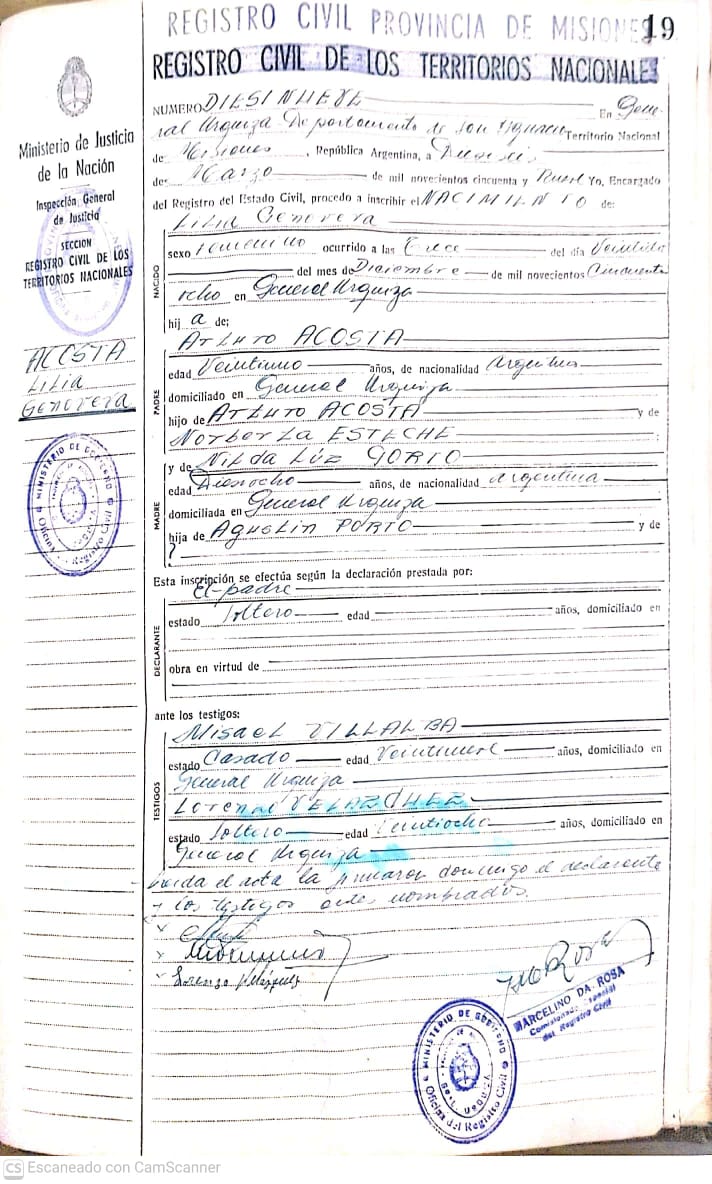 REGISTRO CIVIL PROVINCIA DE MISIONES
19
REGISTRO CIVIL DE LOS TERRITORIOS NACIONALES
Ministerio de Justicia
de la Nación
Inspección General
de Justicia
SECCION
REGISTRO CIVIL DE LOS
TERRITORIOS NACIONALES
ACOSTA
Lilia
Genovera
MINISTERIO DE GOBIERNO
Oficina del Registro Civil
NUMERO DIESINUEVE En Gene
ral Urquiza Departamento de San Ignacio Territorio Nacional
de Misiones, República Argentina, a
de Marzo de mil novecientos cincuenta y Nueve Yo, Encargado
del Registro del Estado Civil, procedo a inscribir el NACIMIENTO de:
NACIDO
Lilia Genovera
sexo femenino ocurrido a las Trece del día Veintito
del mes de Diciembre de mil novecientos Cincuenta
ocho en General Urquiza
hij a de;
PADRE
Arturo ACOSTA
edad Veintiuno años, de nacionalidad Argentina
domiciliado en General Urquiza
hijo de Arturo ACOSTA y de
Norberta ESTECHE
MADRE
y de Nilda Luz PORTO
edad Dieciocho años, de nacionalidad Argentina
domiciliada en General Urquiza
hija de Agustin PORTO y de
?
Esta inscripción se efectúa según la declaración prestada por:
DECLARANTE
El padre
estado Soltero edad años, domiciliado en
obra en virtud de
ante los testigos:
TESTIGOS
Misael VILLALBA
estado Casado edad Veintinueve años, domiciliado en
General Urquiza
Lorenzo VELAZQUEZ
estado Soltero edad Veintiocho años, domiciliado en
General Urquiza
Leída el acta la firmaron conmigo el declarante
y los testigos antes nombrados.
Lorenzo Velázquez
MARCELINO DA ROSA
Comisionado Especial
del Registro Civil
MINISTERIO DE GOBIERNO
Oficina del Registro Civil
CS Escaneado con CamScanner